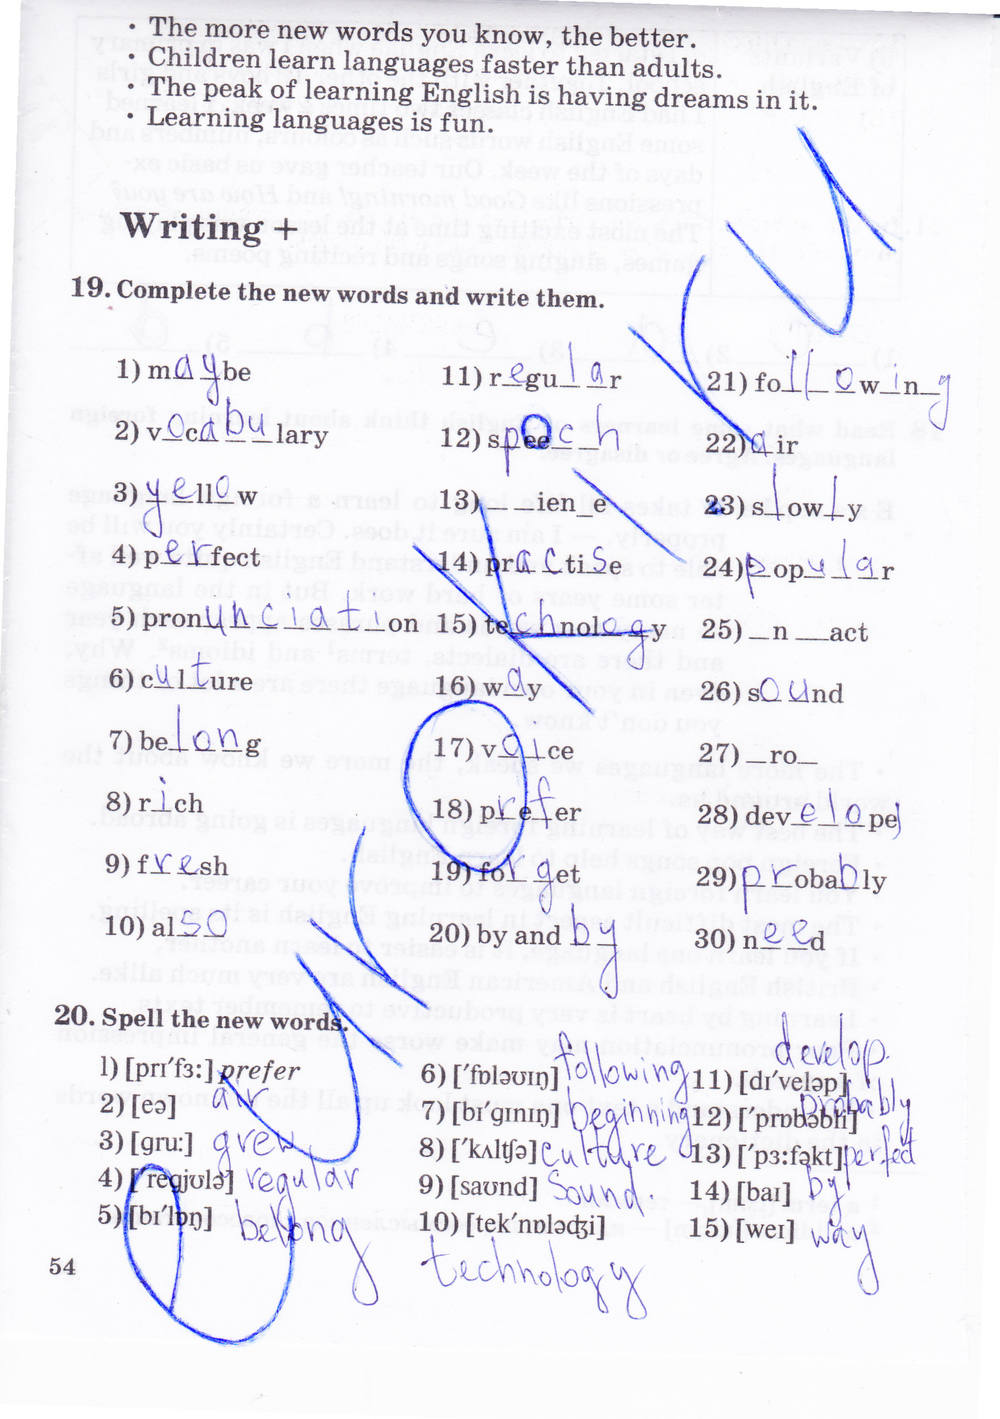 • The more new words you know, the better.
• Children learn languages faster than adults.
• The peak of learning English is having dreams in it.
• Learning languages is fun.
Writing +
19. Complete the new words and write them.
1) maybe
2) vocabulary
3) yellow
4) perfect
5) pronunciation
6) culture
7) belong
8) rich
9) fresh
10) also
11) regular
12) speech
13) _ _ien_e
14) practise
15) technology
16) way
17) voice
18) prefer
19) forget
20) by and by
21) following
22) air
23) slowly
24) popular
25) _n_ _act
26) sound
27) _ro_
28) develope
29) probably
30) need
20. Spell the new words.
1) [prɪ′fɜ:] prefer
2) [eə] air
3) [gru:] grew
4) [′regjʊlə] regular
5) [bɪ′lɒŋ] belong
6) [′fɒləʊɪŋ] following
7) [bɪ′gɪnɪŋ] beginning
8) [′kʌltʃə] culture
9) [saʊnd] sound.
10) [tek′nɒlədʒi] technology
11) [dɪ′veləp] develop.
12) [′prɒbəbli] probably
13) [′pɜ:fəkt] perfect
14) [baɪ] by
15) [weɪ] way
54